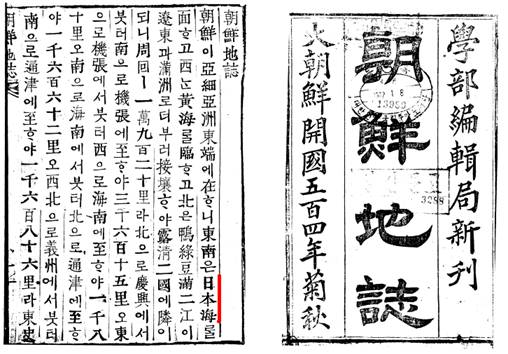 學部編輯局新刊
朝鮮地誌
大朝鮮開國五百四年菊秋
3288
朝鮮地誌
朝鮮이亞細亞洲東端에在ᄒᆞ니東南은日本海를
面ᄒᆞ고西ᄂᆞᆫ黃海를臨ᄒᆞ고北은鴨綠豆滿二江이
遼東과滿洲로더부러接壤ᄒᆞ야露淸二國에隣이
되니周回ㅣ一萬九百二十里라北으로慶興에서
붓터南으로機張에至ᄒᆞ야三千六百十五里오東
으로機張에서붓터西으로海南에至ᄒᆞ야一千八
十里오南으로海南에서붓터北으로通津에至ᄒᆞ
야一千六百六十二里오西北으로義州에서붓터
南으로通津에至ᄒᆞ야一千六百八十六里라東史
朝鮮地誌